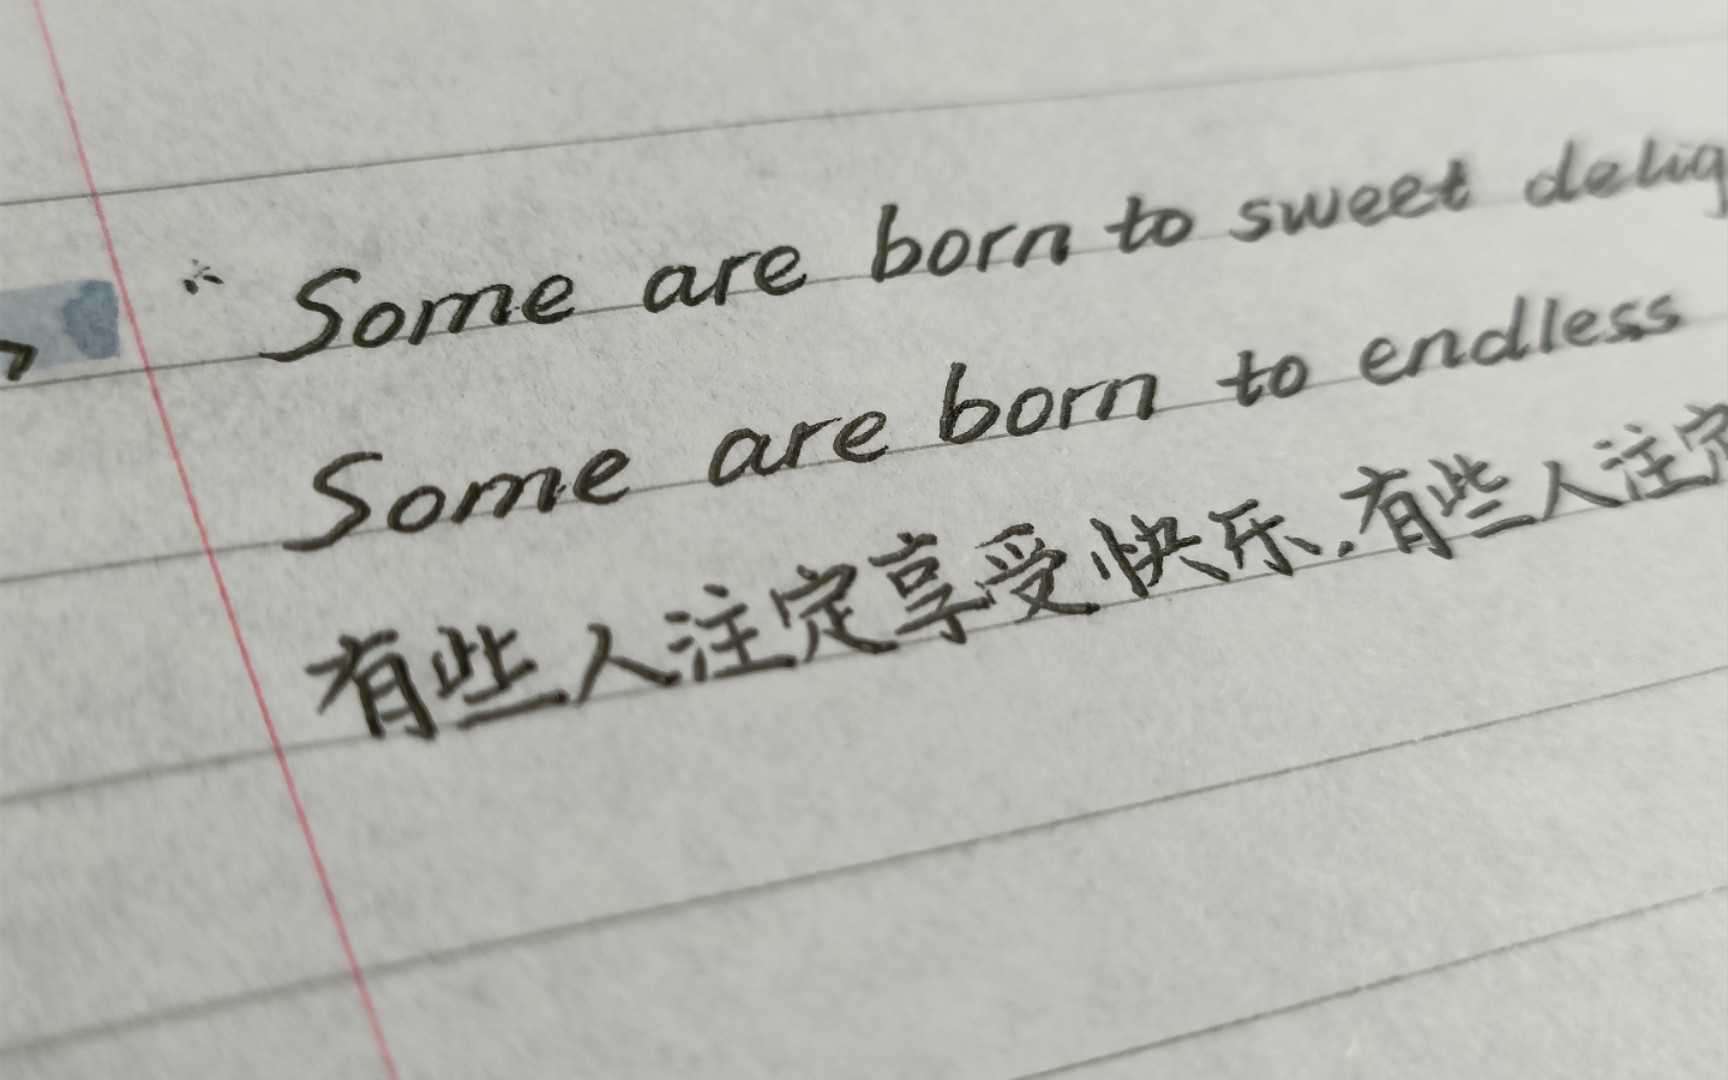 “ Some are born to sweet
Some are born to endless
有些人注定享受快乐,有些人注定